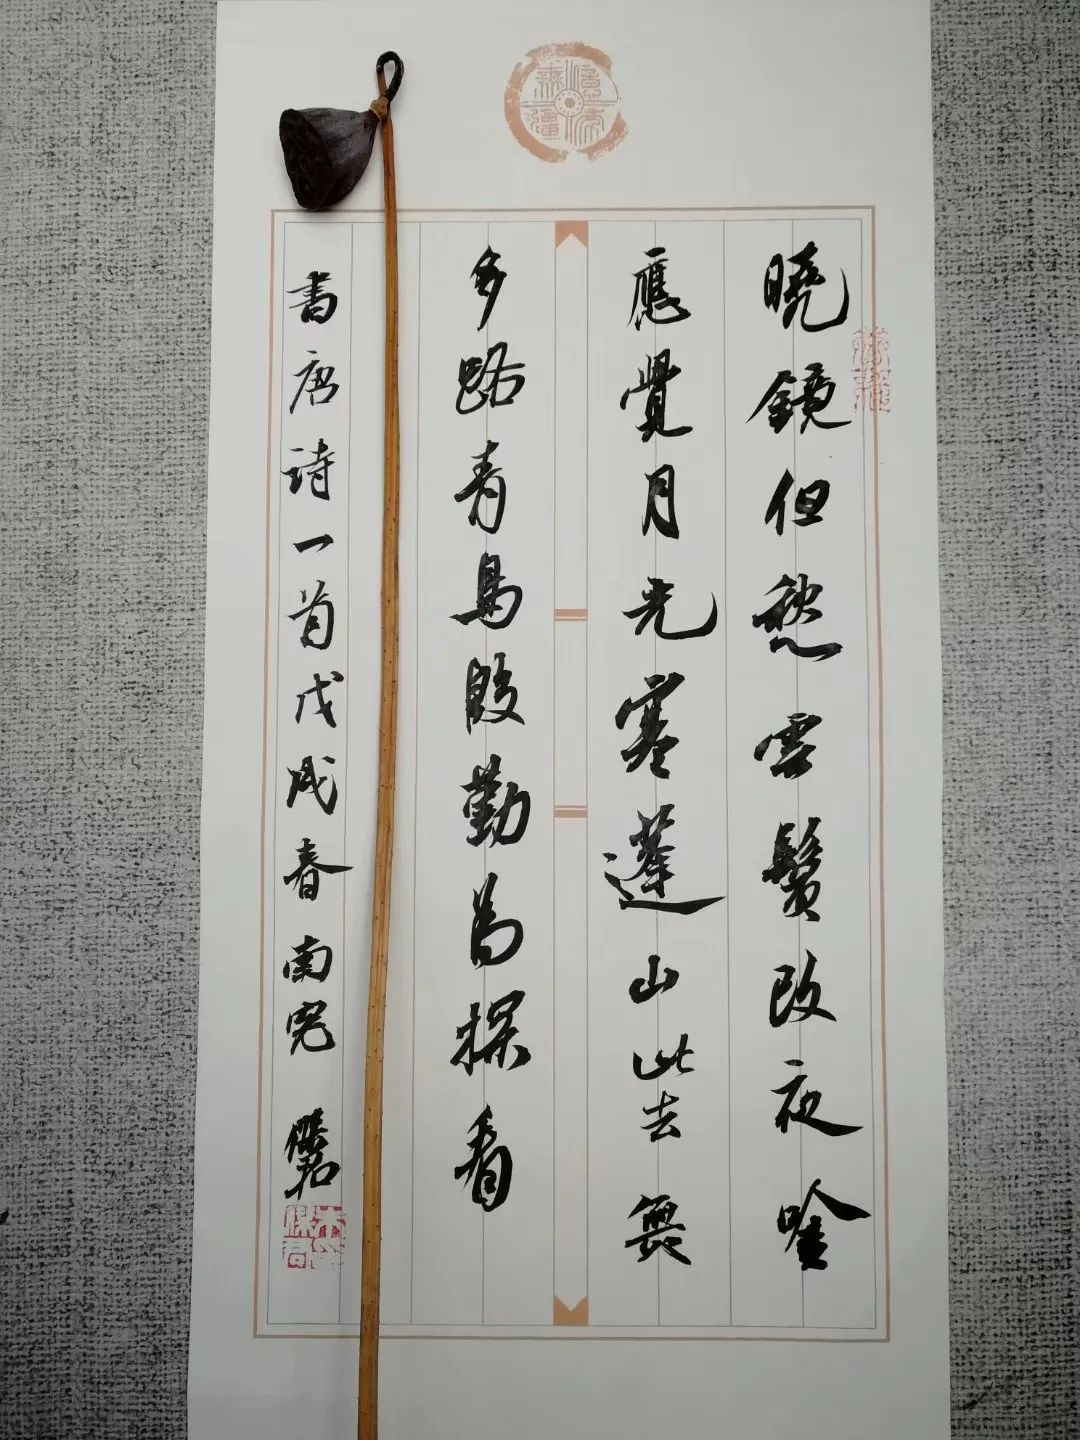 曉鏡但愁雲鬢改夜吟
應覺月光寒蓬山此去無
多路青鳥殷勤為探看
書唐诗一首戊戌春南窓